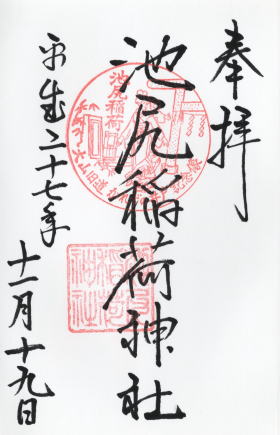 奉拝
池尻稲荷神社
平成二十七年
十一月十九日
池尻稲荷
大山旧道